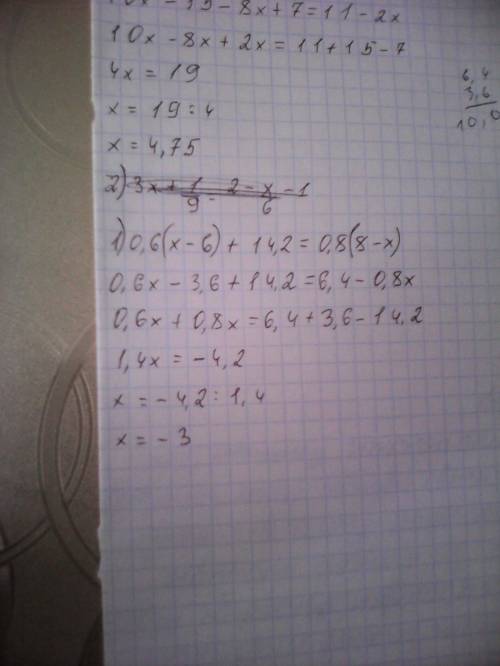 10x - 15 - 8x + 7 = 11 - 2x
10x - 8x + 2x = 11 + 15 - 7
4x = 19
x = 19 : 4
x = 4,75
2) 3x + 1/9 - 2 - x/6 - 1
1) 0,6(x - 6) + 14,2 = 0,8(8 - x)
0,6x - 3,6 + 14,2 = 6,4 - 0,8x
0,6x + 0,8x = 6,4 + 3,6 - 14,2
1,4x = - 4,2
x = - 4,2 : 1,4
x = - 3
6,4
3,6
10,0